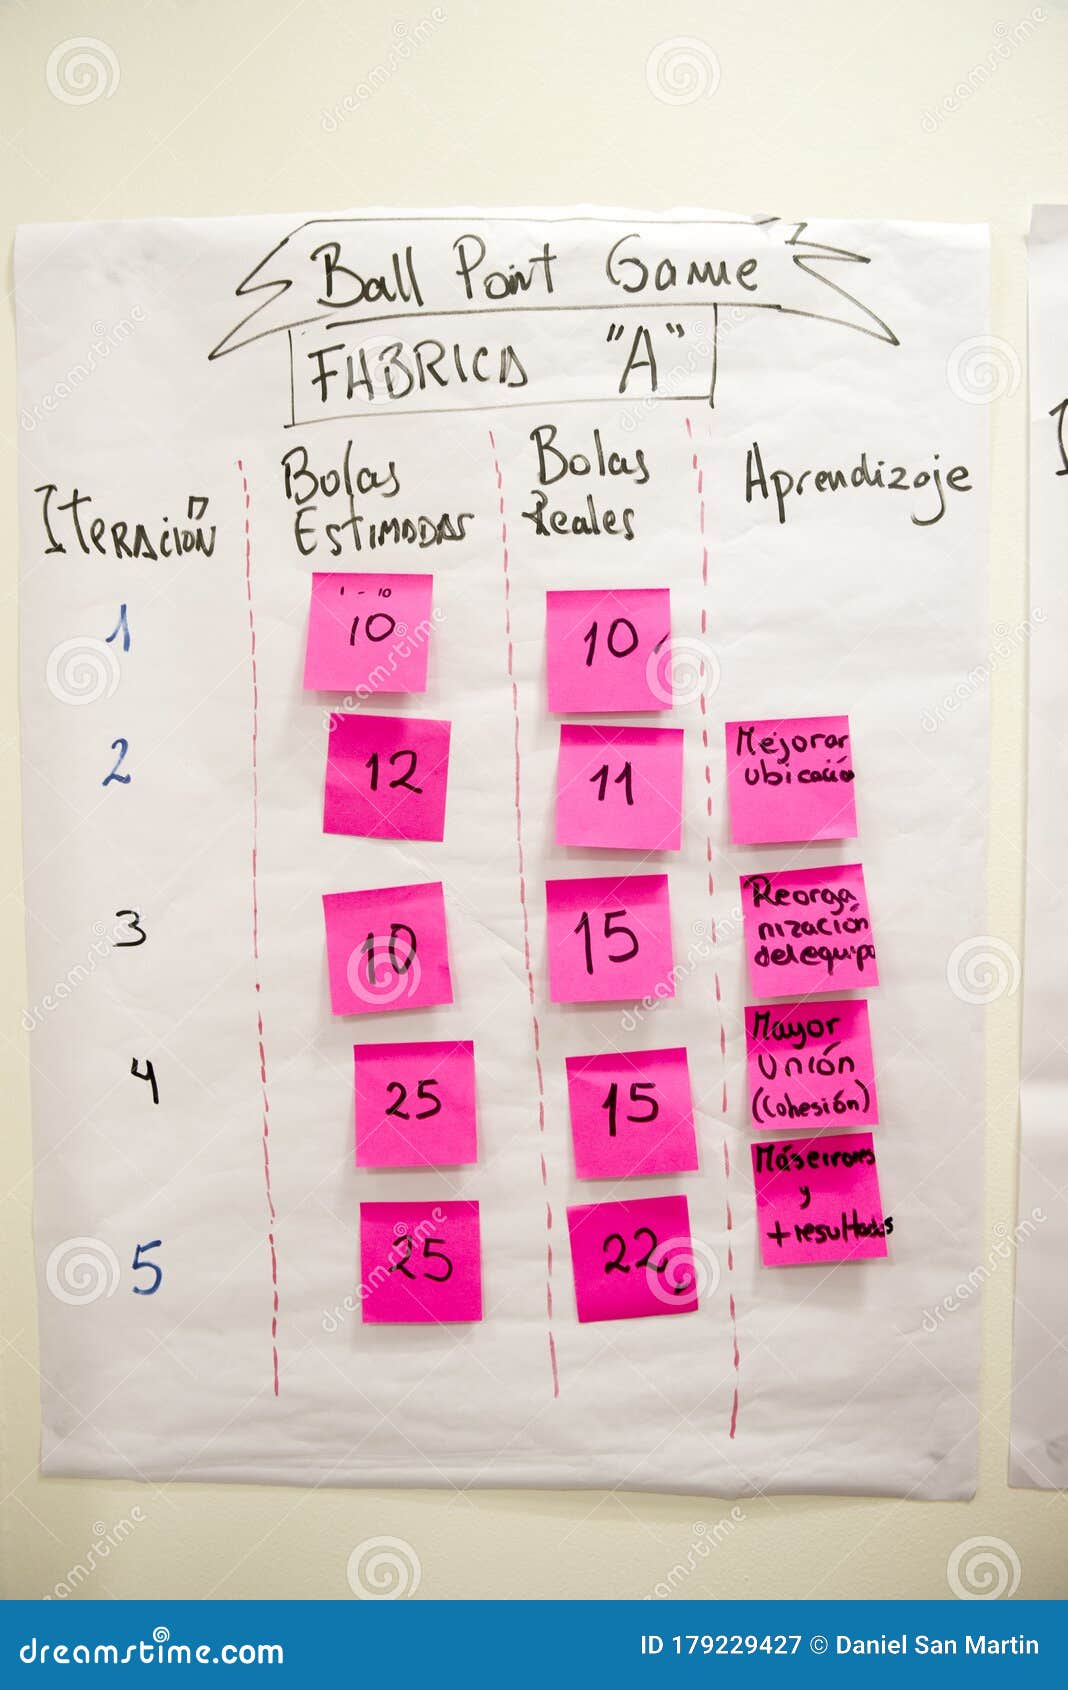 Ball Point Game
FABRICA "A"
Iteración
Bolas
Estimadas
Bolas
Reales
Aprendizaje
1
1 - 10
10
10
2
12
11
Mejorar
ubicación
3
10
15
Reorga
nización
del equipo
4
25
15
Mayor
Unión
(Cohesión)
5
25
22
Más errores
y
+ resultados
dreamstime.com
ID 179229427 © Daniel San Martin